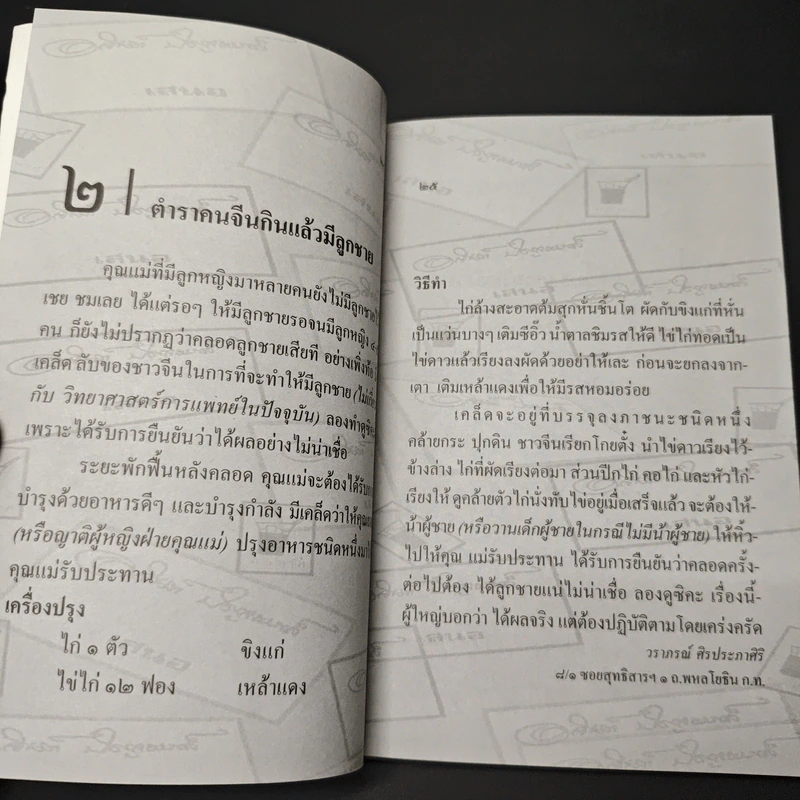 ๒
ตำราคนจีนกินแล้วมีลูกชาย
คุณแม่ที่มีลูกหญิงมาหลายคนยังไม่มีลูกชาย
เชย ชมเลย ได้แต่รอๆ ให้มีลูกชายรอจนมีลูกหญิง
คน ก็ยังไม่ปรากฏว่าคลอดลูกชายเสียที อย่าเพิ่งท้อ
เคล็ด ลับของชาวจีนในการที่จะทำให้มีลูกชาย
กับ วิทยาศาสตร์การแพทย์ในปัจจุบัน) ลองทำดูซิคะ
เพราะได้รับการยืนยันว่าได้ผลอย่างไม่น่าเชื่อ
ระยะพักฟื้นหลังคลอด คุณแม่จะต้องได้รับ
บำรุงด้วยอาหารดีๆ และบำรุงกำลัง มีเคล็ดว่าให้
(หรือญาติผู้หญิงฝ่ายคุณแม่) ปรุงอาหารชนิดหนึ่ง
คุณแม่รับประทาน
เครื่องปรุง
ไก่ ๑ ตัว ขิงแก่
ไข่ไก่ ๑๒ ฟอง เหล้าแดง
๒๕
วิธีทำ
ไก่ล้างสะอาดต้มสุกหั่นชิ้นโต ผัดกับขิงแก่ที่หั่น
เป็นแว่นบางๆ เติมซีอิ๊ว น้ำตาลชิมรสให้ดี ไข่ไก่ทอดเป็น
ไข่ดาวแล้วเรียงลงผัดด้วยอย่าให้เละ ก่อนจะยกลงจาก-
เตา เติมเหล้าแดงเพื่อให้มีรสหอมอร่อย
เคล็ดจะอยู่ที่บรรจุลงภาชนะชนิดหนึ่ง
คล้ายกระ ปุกดิน ชาวจีนเรียกโกยตั๋ง นำไข่ดาวเรียงไว้-
ข้างล่าง ไก่ที่ผัดเรียงต่อมา ส่วนปีกไก่ คอไก่ และหัวไก่-
เรียงให้ ดูคล้ายตัวไก่นั่งทับไข่อยู่เมื่อเสร็จแล้ว จะต้องให้-
น้าผู้ชาย (หรือวานเด็กผู้ชายในกรณีไม่มีน้าผู้ชาย) ให้หิ้ว-
ไปให้คุณ แม่รับประทาน ได้รับการยืนยันว่าคลอดครั้ง-
ต่อไปต้อง ได้ลูกชายแน่ไม่น่าเชื่อ ลองดูซิคะ เรื่องนี้-
ผู้ใหญ่บอกว่า ได้ผลจริง แต่ต้องปฏิบัติตามโดยเคร่งครัด
วราภรณ์ ศิรประภาศิริ
๘/๑ ซอยสุทธิสารฯ ๑ ถ.พหลโยธิน ก.ท.